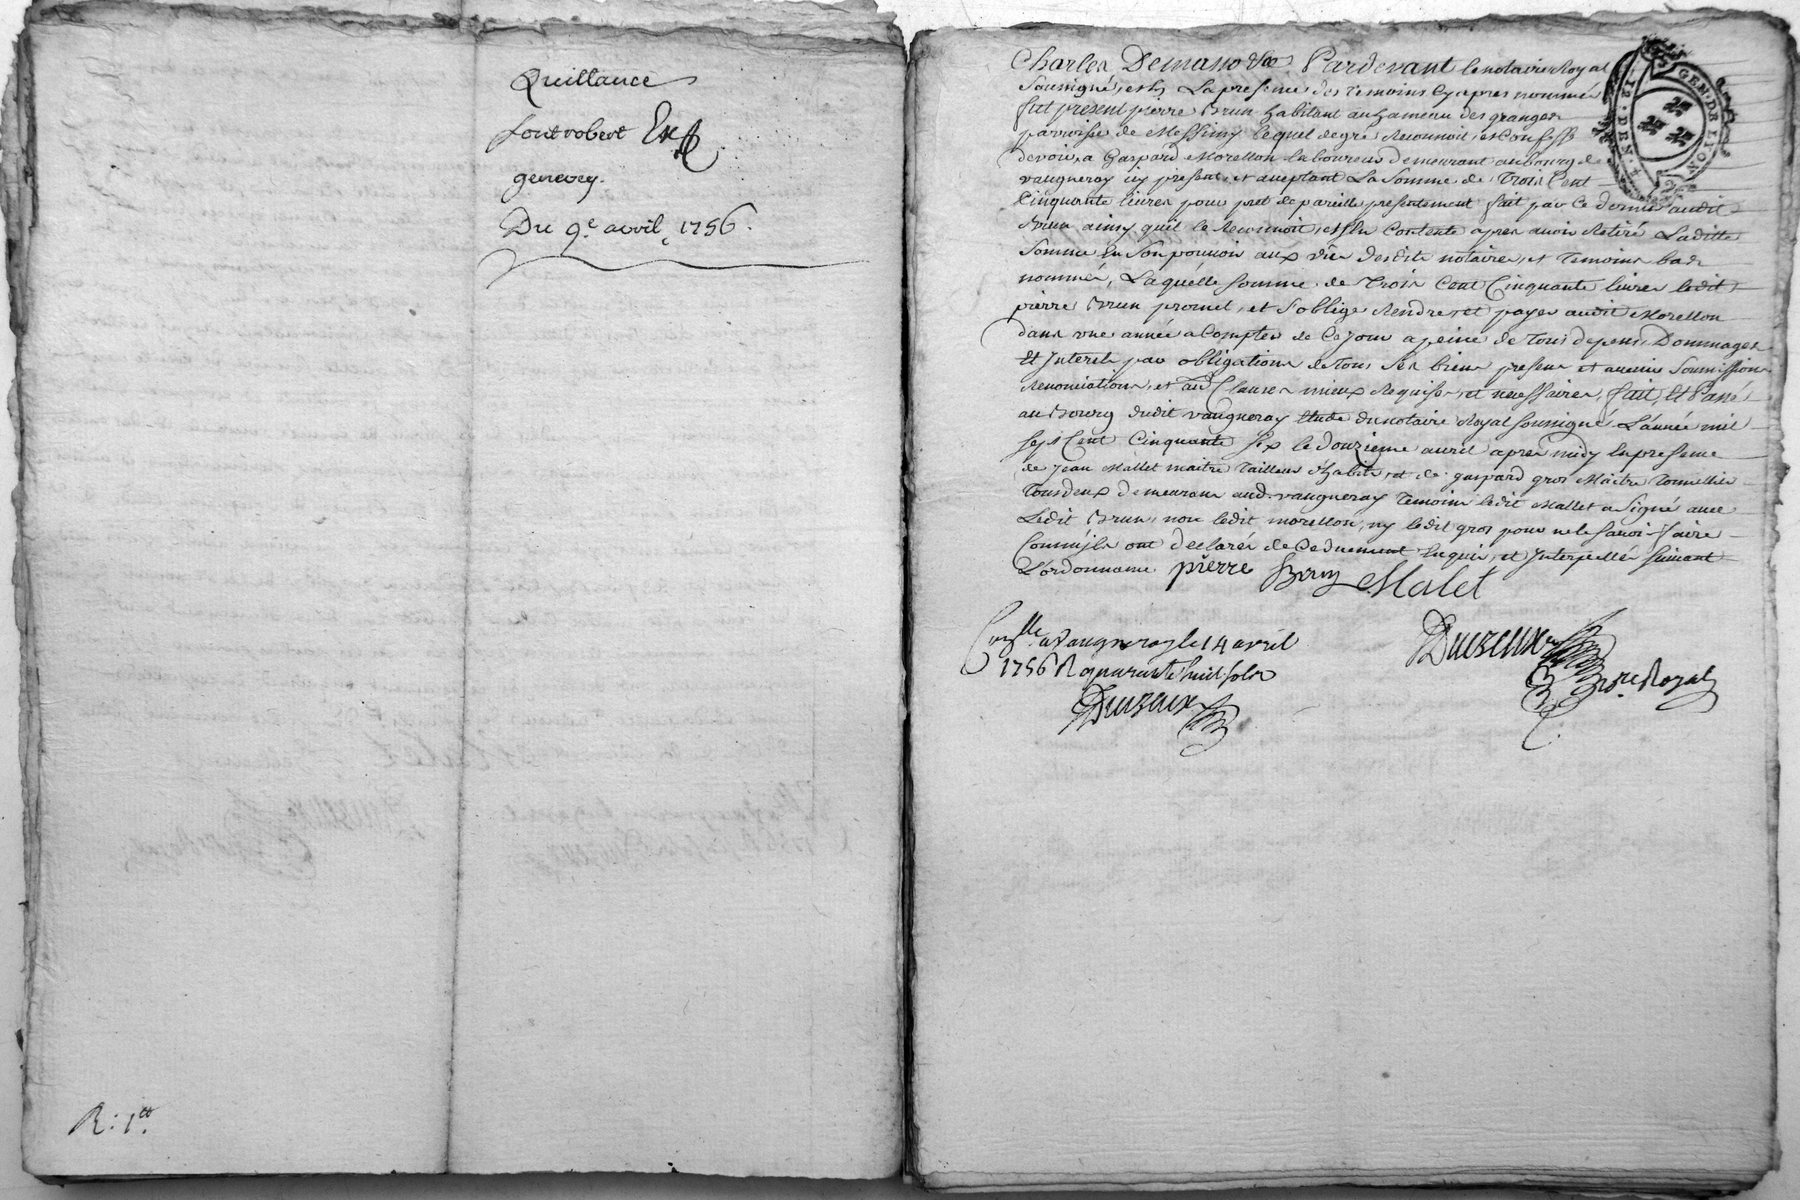 Quittance
fontrobert Exp
genevey.
Du 9e avril 1756.
R: 1tt
Charles Demasso &co Pardevant le notaire Royal
Soussigné, et En La presence des temoins Cy apres nommés
fut present pierre Brun habitant au hameau des granges
parroisse de Messimy lequel de gré Reconnoit, et Confesse
devoir, a Gaspard Morellon laboureur demeurant au bourg de
vaugneray icy present, et aceptant La Somme de Trois Cent
Cinquante livres pour pret de pareille presentement fait par Ce dernier audit
Brun ainsy quil le Reconnoit, et sen Contente apres avoir Retiré Laditte
Somme En Son pouvoir aux vües desdits notaire, et Temoins bas
nommés, Laquelle Somme de Trois Cent Cinquante livres ledit
pierre Brun promet, et Soblige Rendre, et payer audit Morellon
dans une année a Compter de Ce jour a peine de tous depens, Dommages
Et Interets par obligation de tous Ses biens presens et avenir Soumission
Renonciations, et au. Clauses mieux Requises, et necessaires, fait Et Passé
au Bourg dudit vaugneray Etude du notaire Royal Soussigné L'année mil
Sept Cent Cinquante Six le douzieme avril apres midy En presence
de Jean Mallet maitre Tailleur d'habits, et de gaspard gros Maitre Tonnellier
Tous deux demeurans aud. vaugneray Temoins ledit Mallet a Signé avec
Ledit Brun, non ledit morellon, ny ledit gros pour ne le Savoir faire
Comm'jls ont declarés de Ce duement Enquis, et Interpellés Suivant
L'ordonnance pierre Brun Malet
Conllé a Vaugneray le 14 avril
1756 R quarante huit sols
Duizeux
Duizeux
Nore Royal
GEN. DE LYON